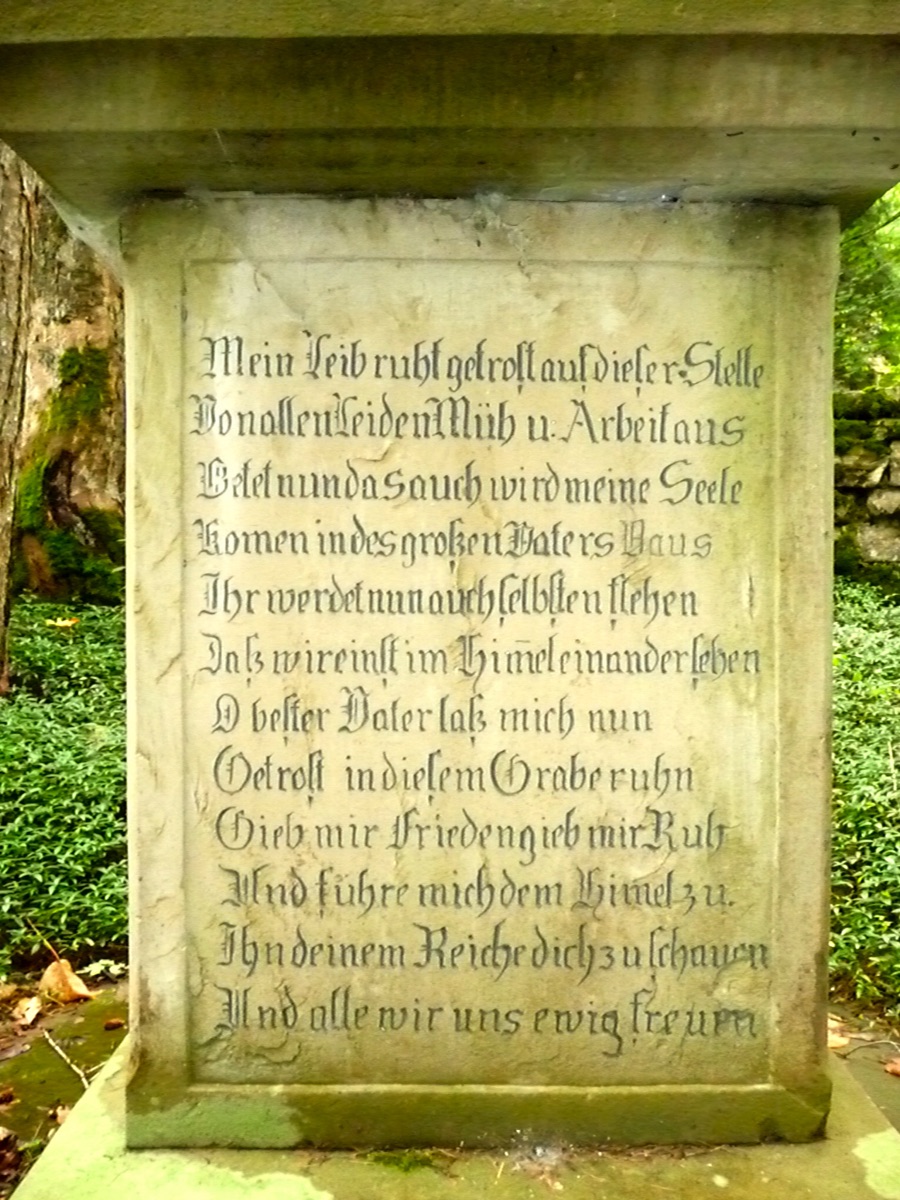 Mein Leib ruht getrost auf dieser Stelle
Von allen Leiden Müh u. Arbeit aus
Betet nun das auch wird meine Seele
Komen in des großen Vaters Haus
Ihr werdet nun auch selbsten stehen
Daß wir einst im Him̄el einander sehen
O bester Vater laß mich nun
Getrost in diesem Grabe ruhn
Gieb mir Frieden gieb mir Ruh
Und führe mich dem Himel zu.
Ihn deinem Reiche dich zu schauen
Und alle wir uns ewig freuen